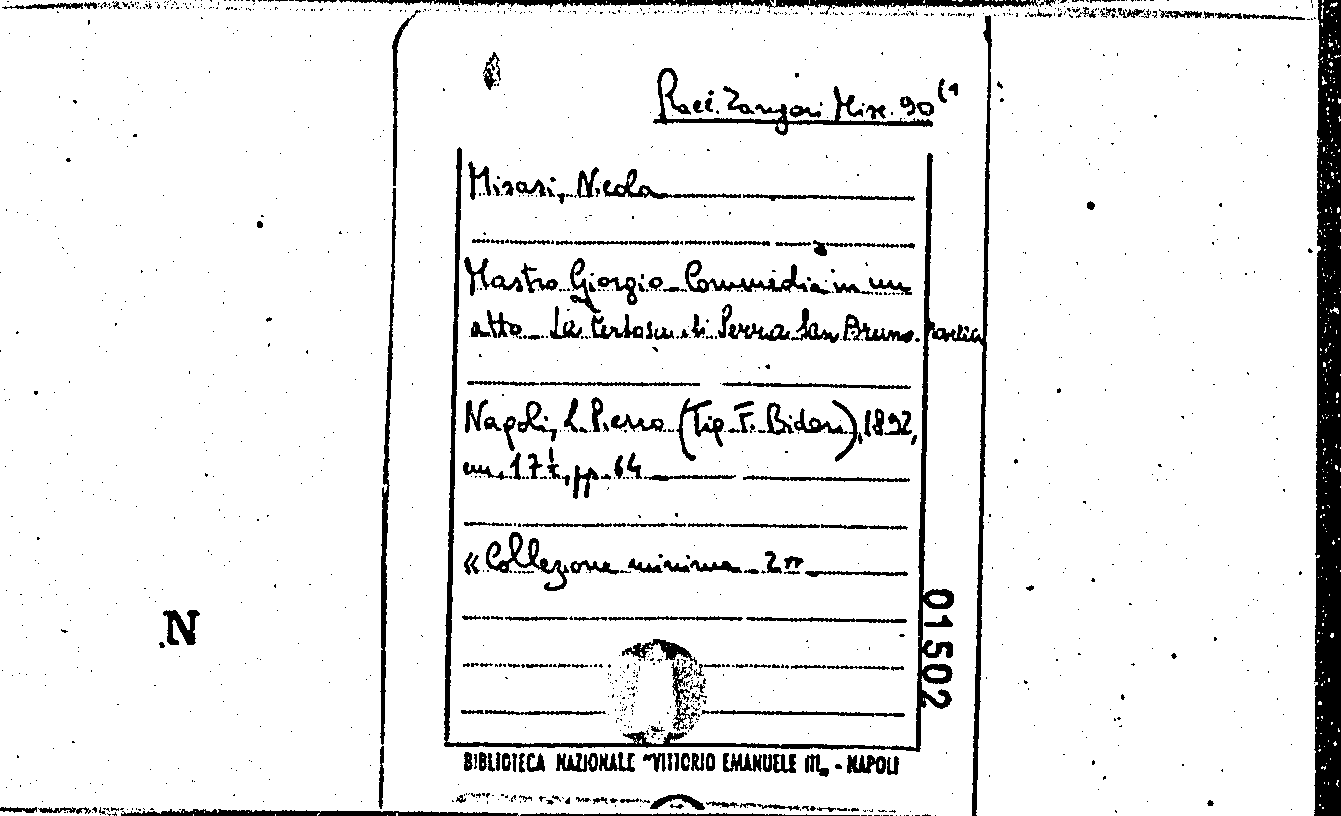 Racc. Zangari Misc. 90 (1
Misasi, Nicola
Mastro Giorgio. Commedia in un
atto. La Certosa di Serra San Bruno.
Napoli, L. Pierro (Tip. F. Bideri), 1892,
cm. 17½, pp. 64
« Collezione minima. 2"
N
01502
BIBLIOTECA NAZIONALE "VITTORIO EMANUELE III„ - NAPOLI